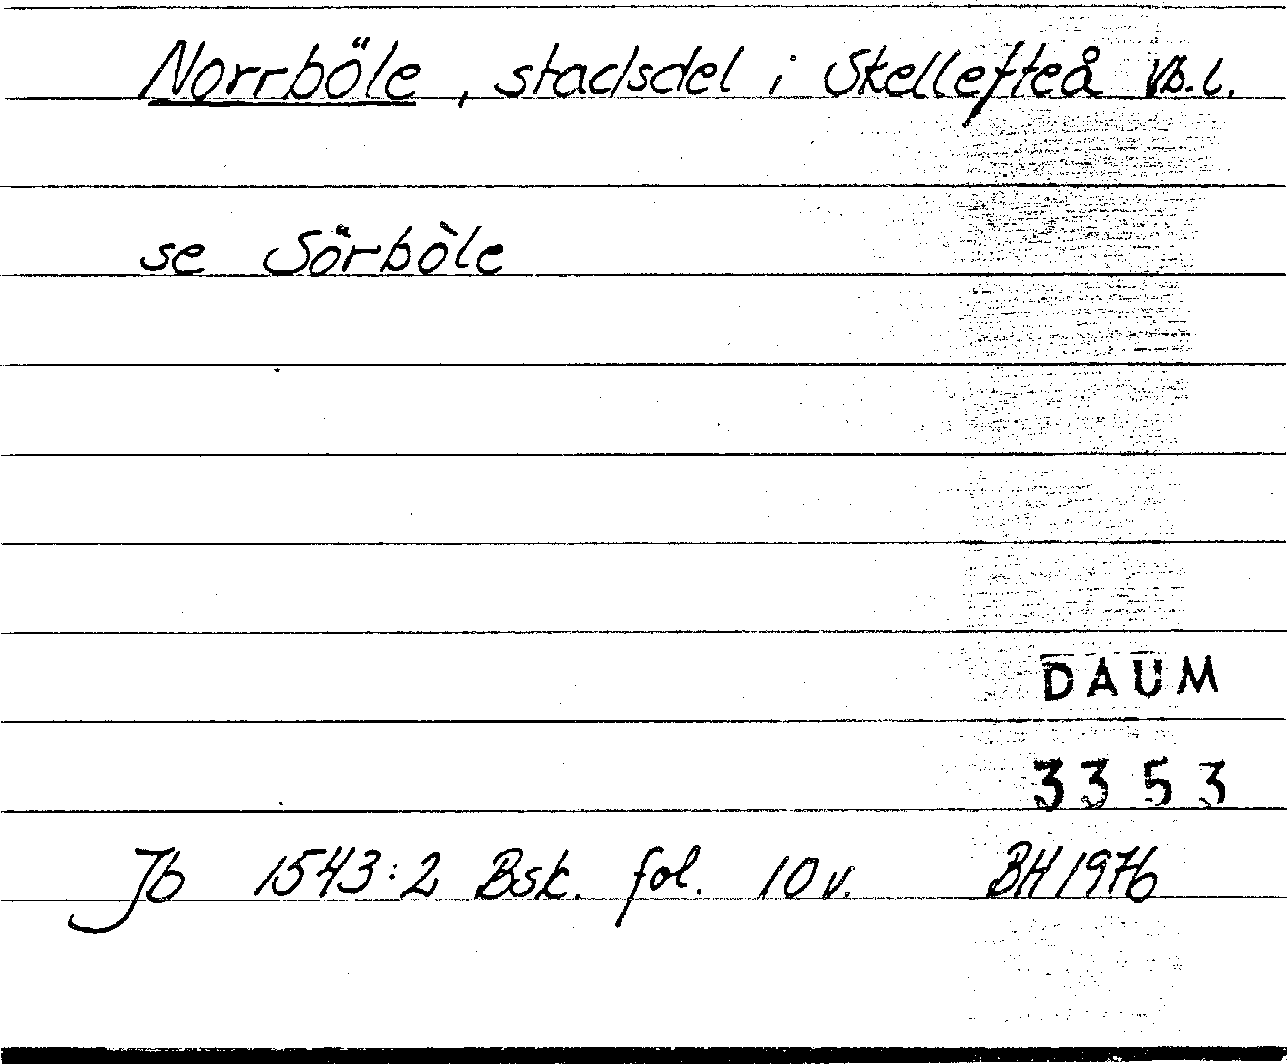 Norrböle, stadsdel i Skellefteå Vb.l.
se Sörböle
DAUM
3353
Jb 1543:2 Bsk. fol. 10v. BH 1976